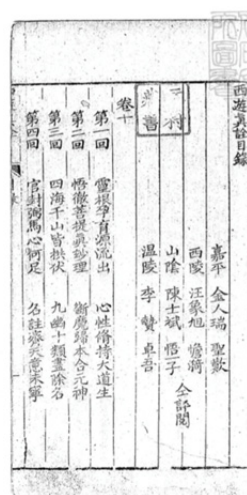 西遊真詮目錄
嘉平 金人瑞 聖歎
西陵 汪象旭 憺漪
山陰 陳士斌 悟一子 仝評閱
溫陵 李贄 卓吾
卷十
第一回 靈根孕育源流出 心性脩持大道生
第二回 悟徹菩提真妙理 斷魔歸本合元神
第三回 四海千山皆拱伏 九幽十類盡除名
第四回 官封弼馬心何足 名註齊天意未寧